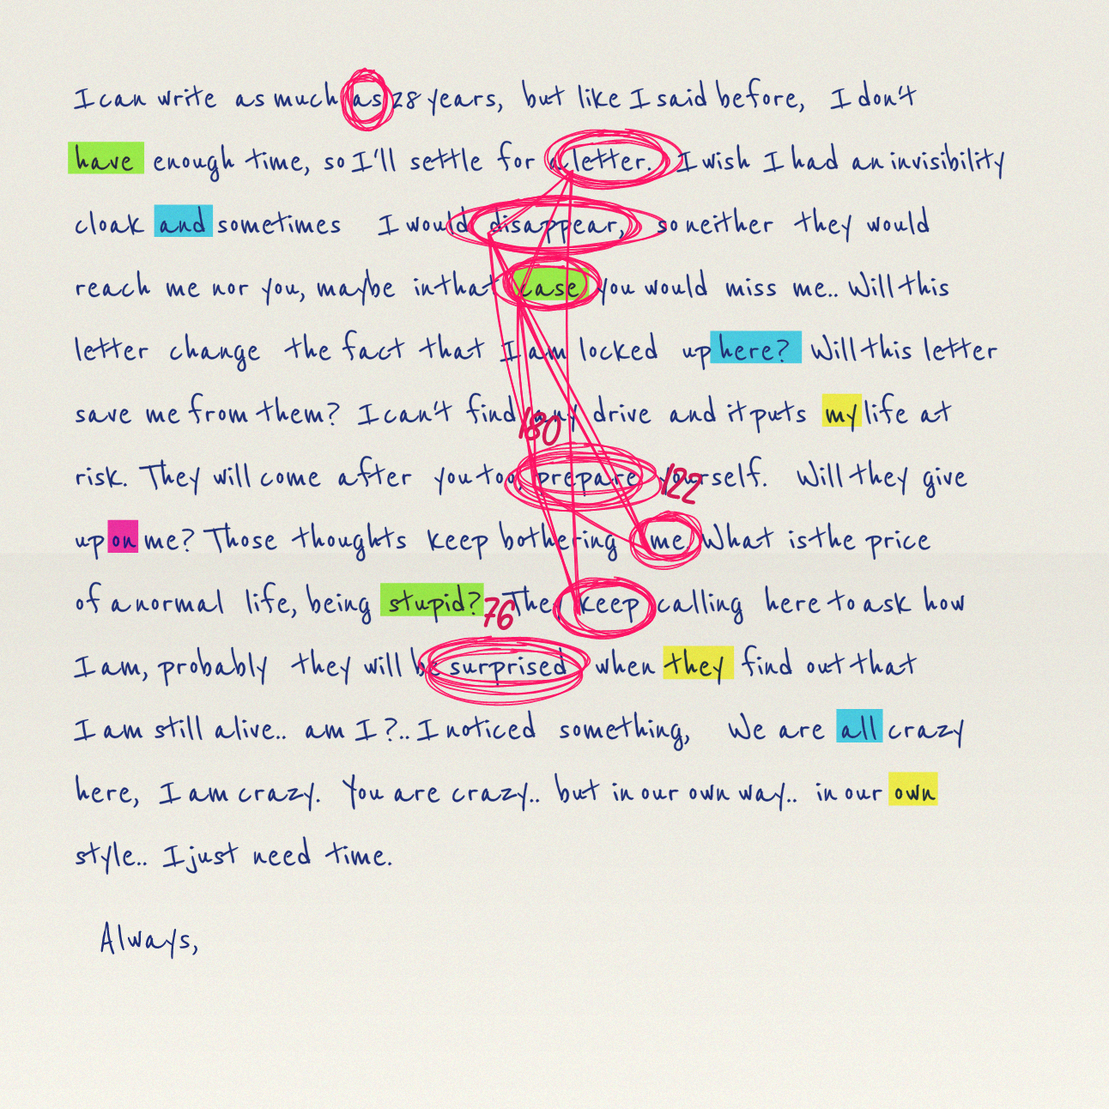 I can write as much as 28 years, but like I said before, I don't
have enough time, so I'll settle for a letter. I wish I had an invisibility
cloak and sometimes I would disappear, so neither they would
reach me nor you, maybe in that case you would miss me.. Will this
letter change the fact that I am locked up here? Will this letter
save me from them? I can't find any drive and it puts my life at
180
risk. They will come after you too, prepare yourself. Will they give
122
up on me? Those thoughts keep bothering me. What is the price
of a normal life, being stupid? They keep calling here to ask how
76
I am, probably they will be surprised when they find out that
I am still alive.. am I?.. I noticed something, We are all crazy
here, I am crazy. You are crazy.. but in our own way.. in our own
style.. I just need time.
Always,